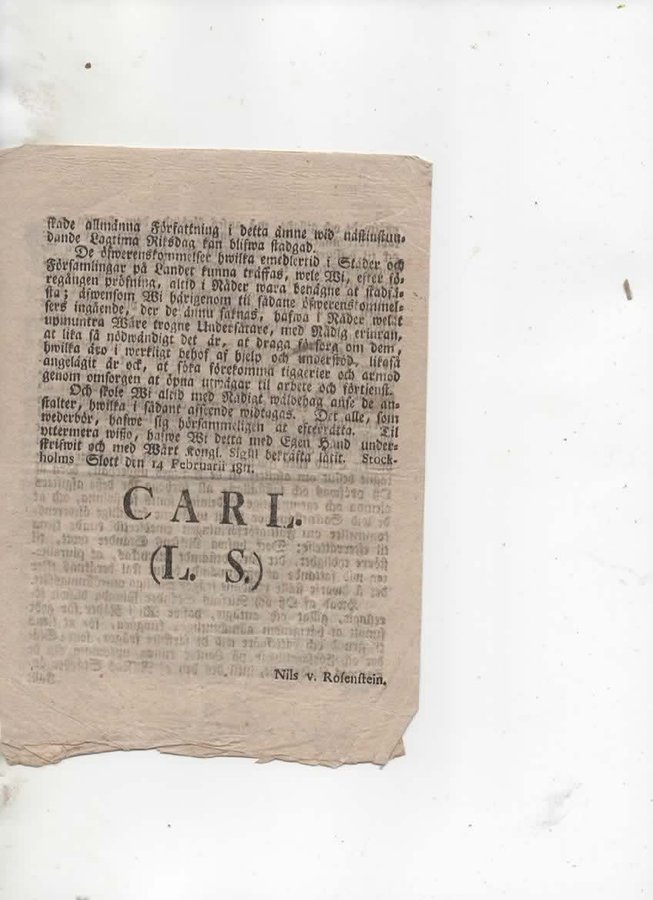 skade allmänna Författning i detta ämne wid nästinstun-
dande Lagtima Riksdag kan blifwa stadgad.
De öfwerenskommelser hwilka emedlertid i Städer och
Församlingar på Landet kunna träffas, wele Wi, efter fö-
regången pröfning, altid i Nåder wara benägne at stadfä-
sta; äfwensom Wi härigenom til sådane öfwerenskommel-
sers ingående, der de ännu saknas, hafwa i Nåder welat
upmuntra Wåre trogne Undersåtare, med Nådig erinran,
at lika så nödwändigt det är, at draga försorg om dem,
hwilka äro i werkligt behof af hjelp och understöd, likaså
angelägit är ock, at söka förekomma tiggerier och armod
genom omsorgen at öpna utwägar til arbete och förtienst.
Och skole Wi altid med Nådigt wälbehag anse de an-
stalter, hwilka i sådant afseende widtagas. Det alle, som
wederbör, hafwe sig hörsammeligen at efterrätta. Til
yttermera wisso, hafwe Wi detta med Egen Hand under-
skrifwit och med Wårt Kongl. Sigill bekräfta låtit. Stock-
holms Slott den 14 Februarii 1811.
CARL.
(L. S.)
Nils v. Rosenstein.